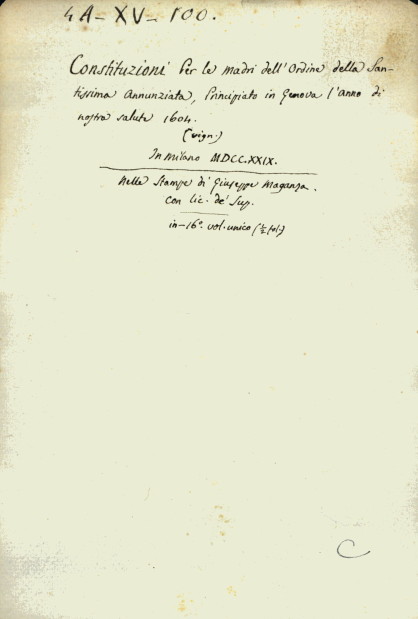 4A-XV-100.
Constituzioni Per le madri dell'Ordine della San-
tissima Annunziata, Principiato in Genova l'anno di
nostra salute 1604.
(vign.)
In Milano MDCC.XXIX.
Nelle Stampe di Giuseppe Maganza.
Con lic. de' Sup.
in-16°. vol. unico
C